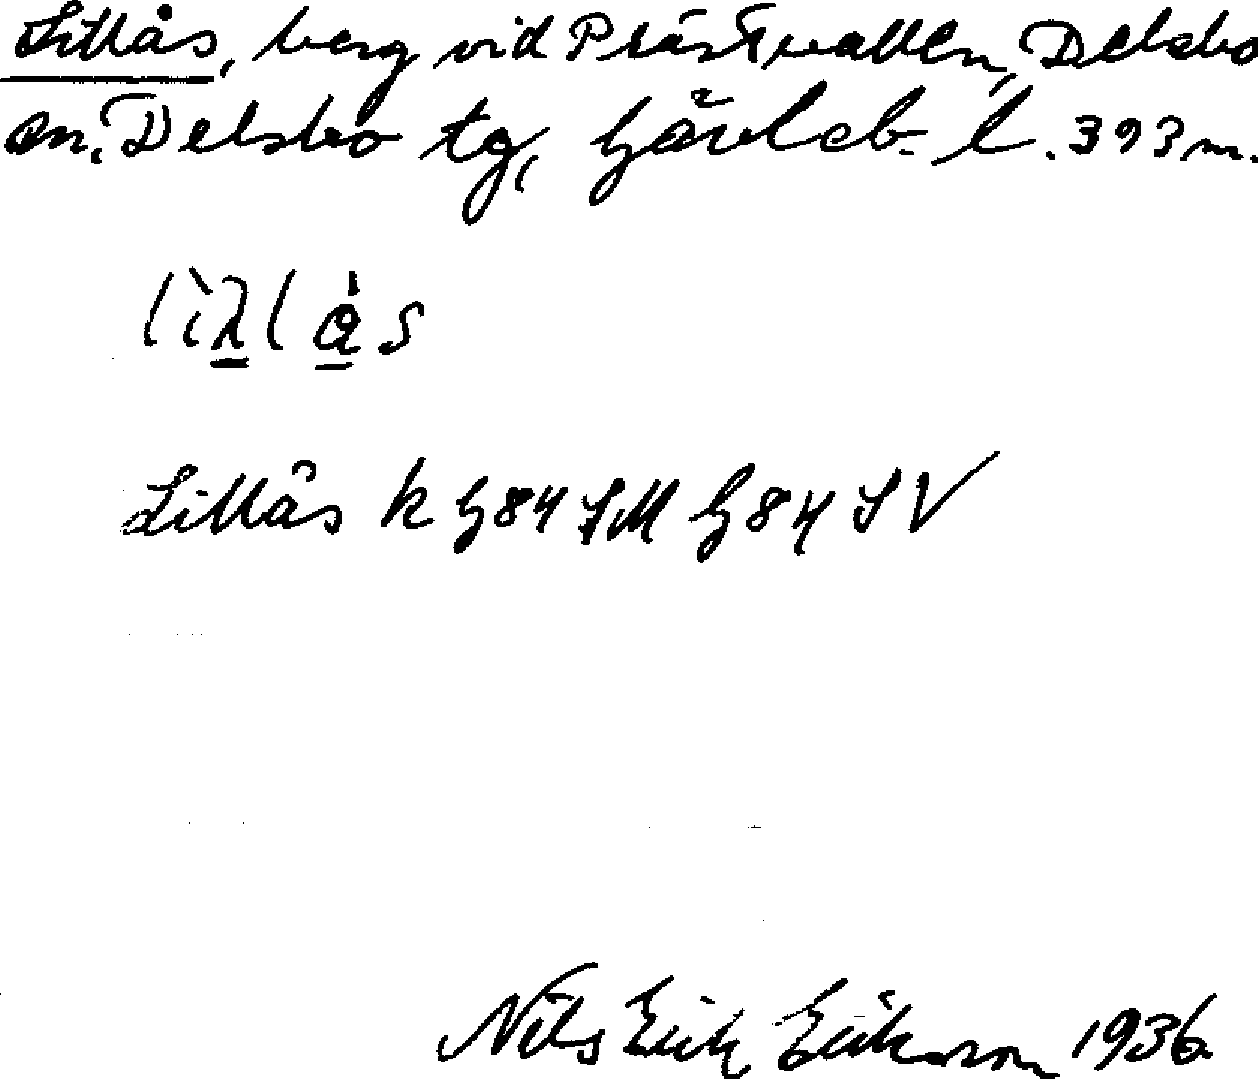 Lillås, berg vid Prästvallen, Delsbo
sn. Delsbo tg, Gävleb. l. 393 m.
lìλlås
Lillås k G84 G84 SV
Nils Erik Erikson 1936.